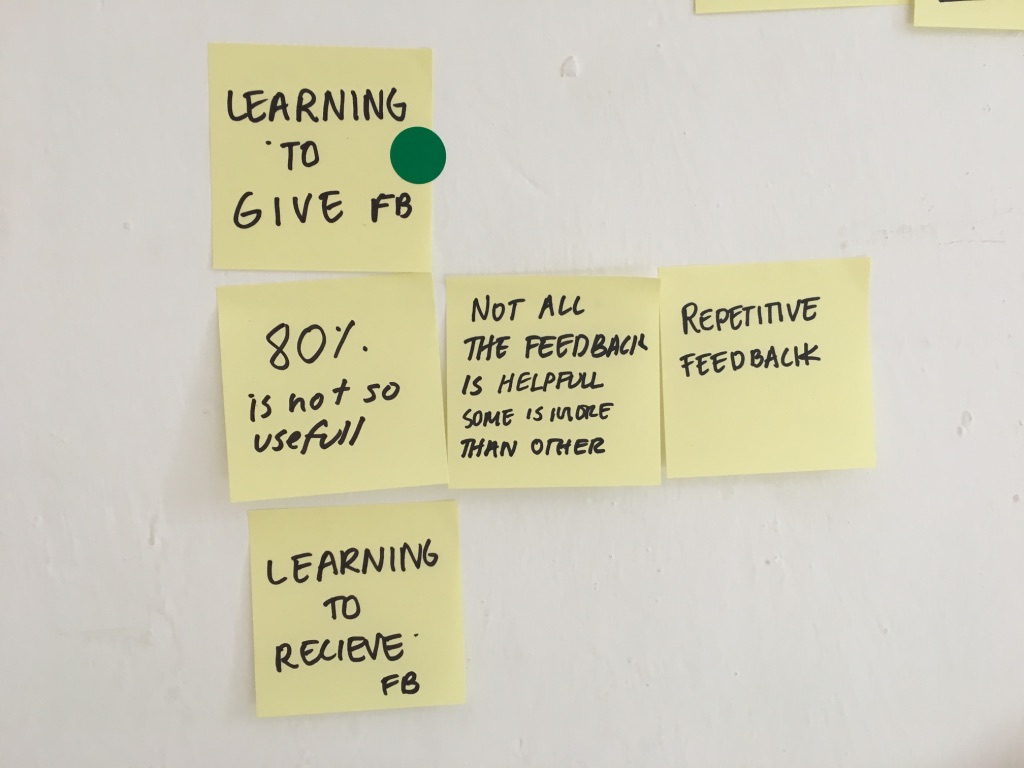 LEARNING
TO
GIVE FB
80%.
is not so
usefull
NOT ALL
THE FEEDBACK
IS HELPFULL
SOME IS MORE
THAN OTHER
REPETITIVE
FEEDBACK
LEARNING
TO
RECIEVE
FB